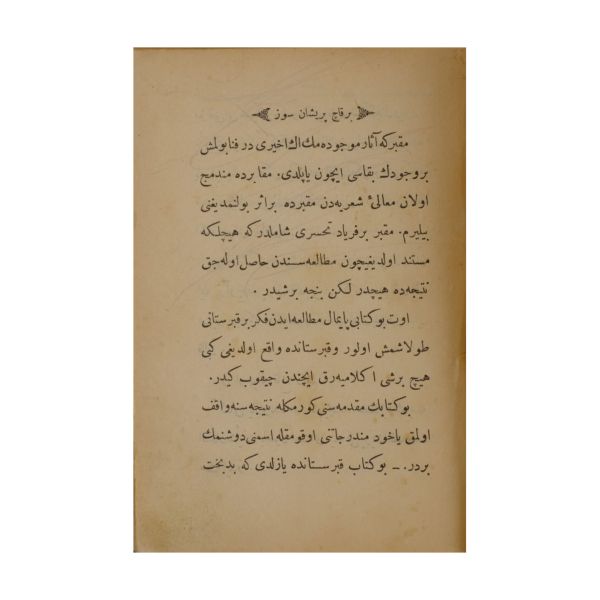 برقاچ پریشان سوز
مقبر که آثار موجوده مك اك اخیری در فنا بولمش
بر وجودك بقاسی ایچون یاپلدی. مقابرده مندمج
اولان معالیٔ شعریه دن مقبرده بر اثر بولنمدیغنی
بیلیرم. مقبر بر فریاد تحسری شاملدر که هیچلکه
مستند اولدیغیچون مطالعه سندن حاصل اوله جق
نتیجه ده هیچدر لکن بنجه بر شیدر .
اوت بو کتابی پایمال مطالعه ایدن فکر بر قبرستانی
طولاشمش اولور و قبرستانده واقع اولدیغی کبی
هیچ بر شی اکلامیه رق ایچندن چیقوب کیدر.
بو کتابك مقدمه سنی کورمکله نتیجه سنه واقف
اولمق یاخود مندرجاتنی اوقومقله اسمنی دوشنمك
بردر. ــ بو کتاب قبرستانده یازلدی که بدبخت